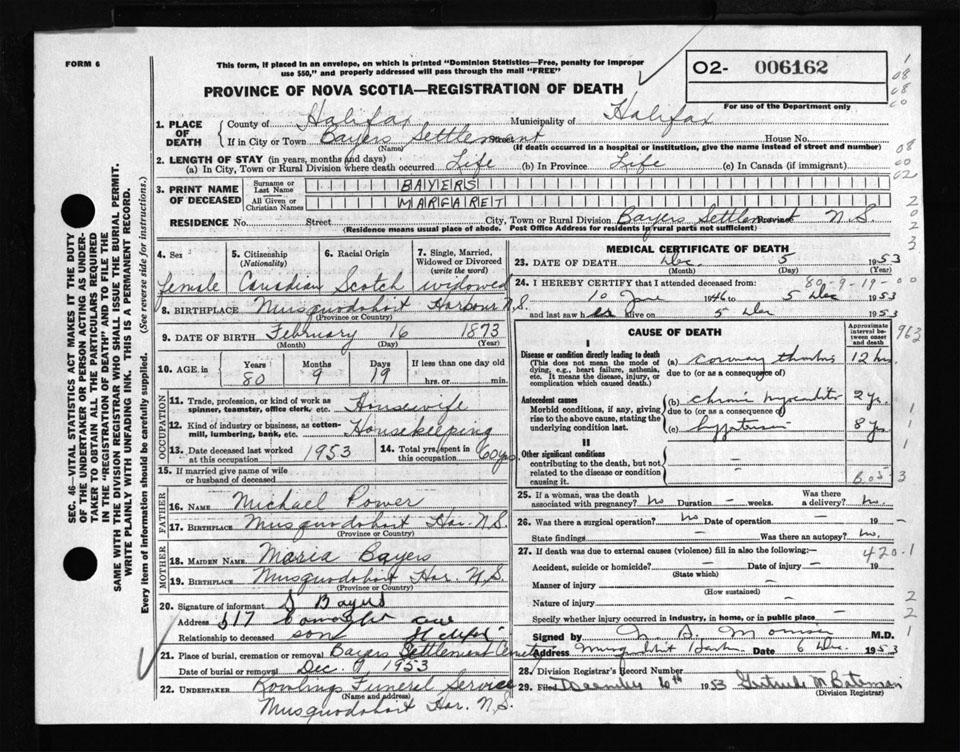 FORM 6
This form, if placed in an envelope, on which is printed "Dominion Statistics—Free, penalty for improper
use $50," and properly addressed will pass through the mail "FREE"
PROVINCE OF NOVA SCOTIA—REGISTRATION OF DEATH
O2- 006162
For use of the Department only
1. PLACE OF DEATH County of Halifax Municipality of Halifax
If in City or Town Bayers Settlement Street House No.
(Name) (If death occurred in a hospital or institution, give the name instead of street and number)
2. LENGTH OF STAY (in years, months and days)
(a) In City, Town or Rural Division where death occurred Life (b) In Province Life (c) In Canada (if immigrant)
3. PRINT NAME OF DECEASED Surname or Last Name BAYERS
All Given or Christian Names MARGARET
RESIDENCE No. Street City, Town or Rural Division Bayers Settlement Province N.S.
(Residence means usual place of abode. Post Office Address for residents in rural parts not sufficient)
4. Sex 5. Citizenship (Nationality) 6. Racial Origin 7. Single, Married, Widowed or Divorced (write the word)
female Canadian Scotch widowed
8. BIRTHPLACE Musquodoboit Harbour N.S.
(Province or Country)
9. DATE OF BIRTH February 16 1873
(Month) (Day) (Year)
10. AGE in Years 80 Months 9 Days 19 If less than one day hrs. or min.
OCCUPATION
11. Trade, profession, or kind of work as spinner, teamster, office clerk, etc. Housewife
12. Kind of industry or business, as cotton-mill, lumbering, bank, etc. Housekeeping
13. Date deceased last worked at this occupation 1953 14. Total yrs. spent in this occupation 60 yrs.
15. If married give name of wife or husband of deceased
FATHER
16. NAME Michael Power
17. BIRTHPLACE Musquodoboit Har. N.S.
(Province or Country)
MOTHER
18. MAIDEN NAME Maria Bayers
19. BIRTHPLACE Musquodoboit Har. N.S.
(Province or Country)
20. Signature of informant J Bayers
Address 517
Relationship to deceased son
21. Place of burial, cremation or removal Bayers Settlement Cemetery
Date of burial or removal Dec. 9 1953
22. UNDERTAKER Rowlings Funeral Service
(Name and address)
Musquodoboit Har. N.S.
MEDICAL CERTIFICATE OF DEATH
23. DATE OF DEATH Dec. 5 1953
(Month) (Day) (Year)
80-9-19-
24. I HEREBY CERTIFY that I attended deceased from:
10 June 1946 to 5 Dec 1953
and last saw her alive on 5 Dec 1953
CAUSE OF DEATH
Approximate interval between onset and death
I
Disease or condition directly leading to death (a) 12 hrs
(This does not mean the mode of dying, e.g., heart failure, asthenia, etc. It means the disease, injury, or complication which caused death.)
due to (or as a consequence of)
Antecedent causes (b) chronic myocarditis 2 yr.
Morbid conditions, if any, giving rise to the above cause, stating the underlying condition last.
due to (or as a consequence of)
(c) 8 yrs
II
Other significant conditions
contributing to the death, but not related to the disease or condition causing it.
25. If a woman, was the death associated with pregnancy? no Duration — weeks. Was there a delivery? no.
26. Was there a surgical operation? no Date of operation — 19 —
State findings — Was there an autopsy? no.
27. If death was due to external causes (violence) fill in also the following:—
420.1
Accident, suicide or homicide? — Date of injury — 19
(State which)
Manner of injury —
(How sustained)
Nature of injury —
Specify whether injury occurred in industry, in home, or in public place —
Signed by M.D.
Address Date 6 Dec. 1953
28. Division Registrar's Record Number
29. Filed December 10th 1953 Gertrude M Bateman
(Division Registrar)
SEC. 46—VITAL STATISTICS ACT MAKES IT THE DUTY
OF THE UNDERTAKER OR PERSON ACTING AS UNDER-
TAKER TO OBTAIN ALL THE PARTICULARS REQUIRED
IN THE "REGISTRATION OF DEATH" AND TO FILE THE
SAME WITH THE DIVISION REGISTRAR WHO SHALL ISSUE THE BURIAL PERMIT.
WRITE PLAINLY WITH UNFADING INK. THIS IS A PERMANENT RECORD.
Every item of information should be carefully supplied. (See reverse side for instructions.)